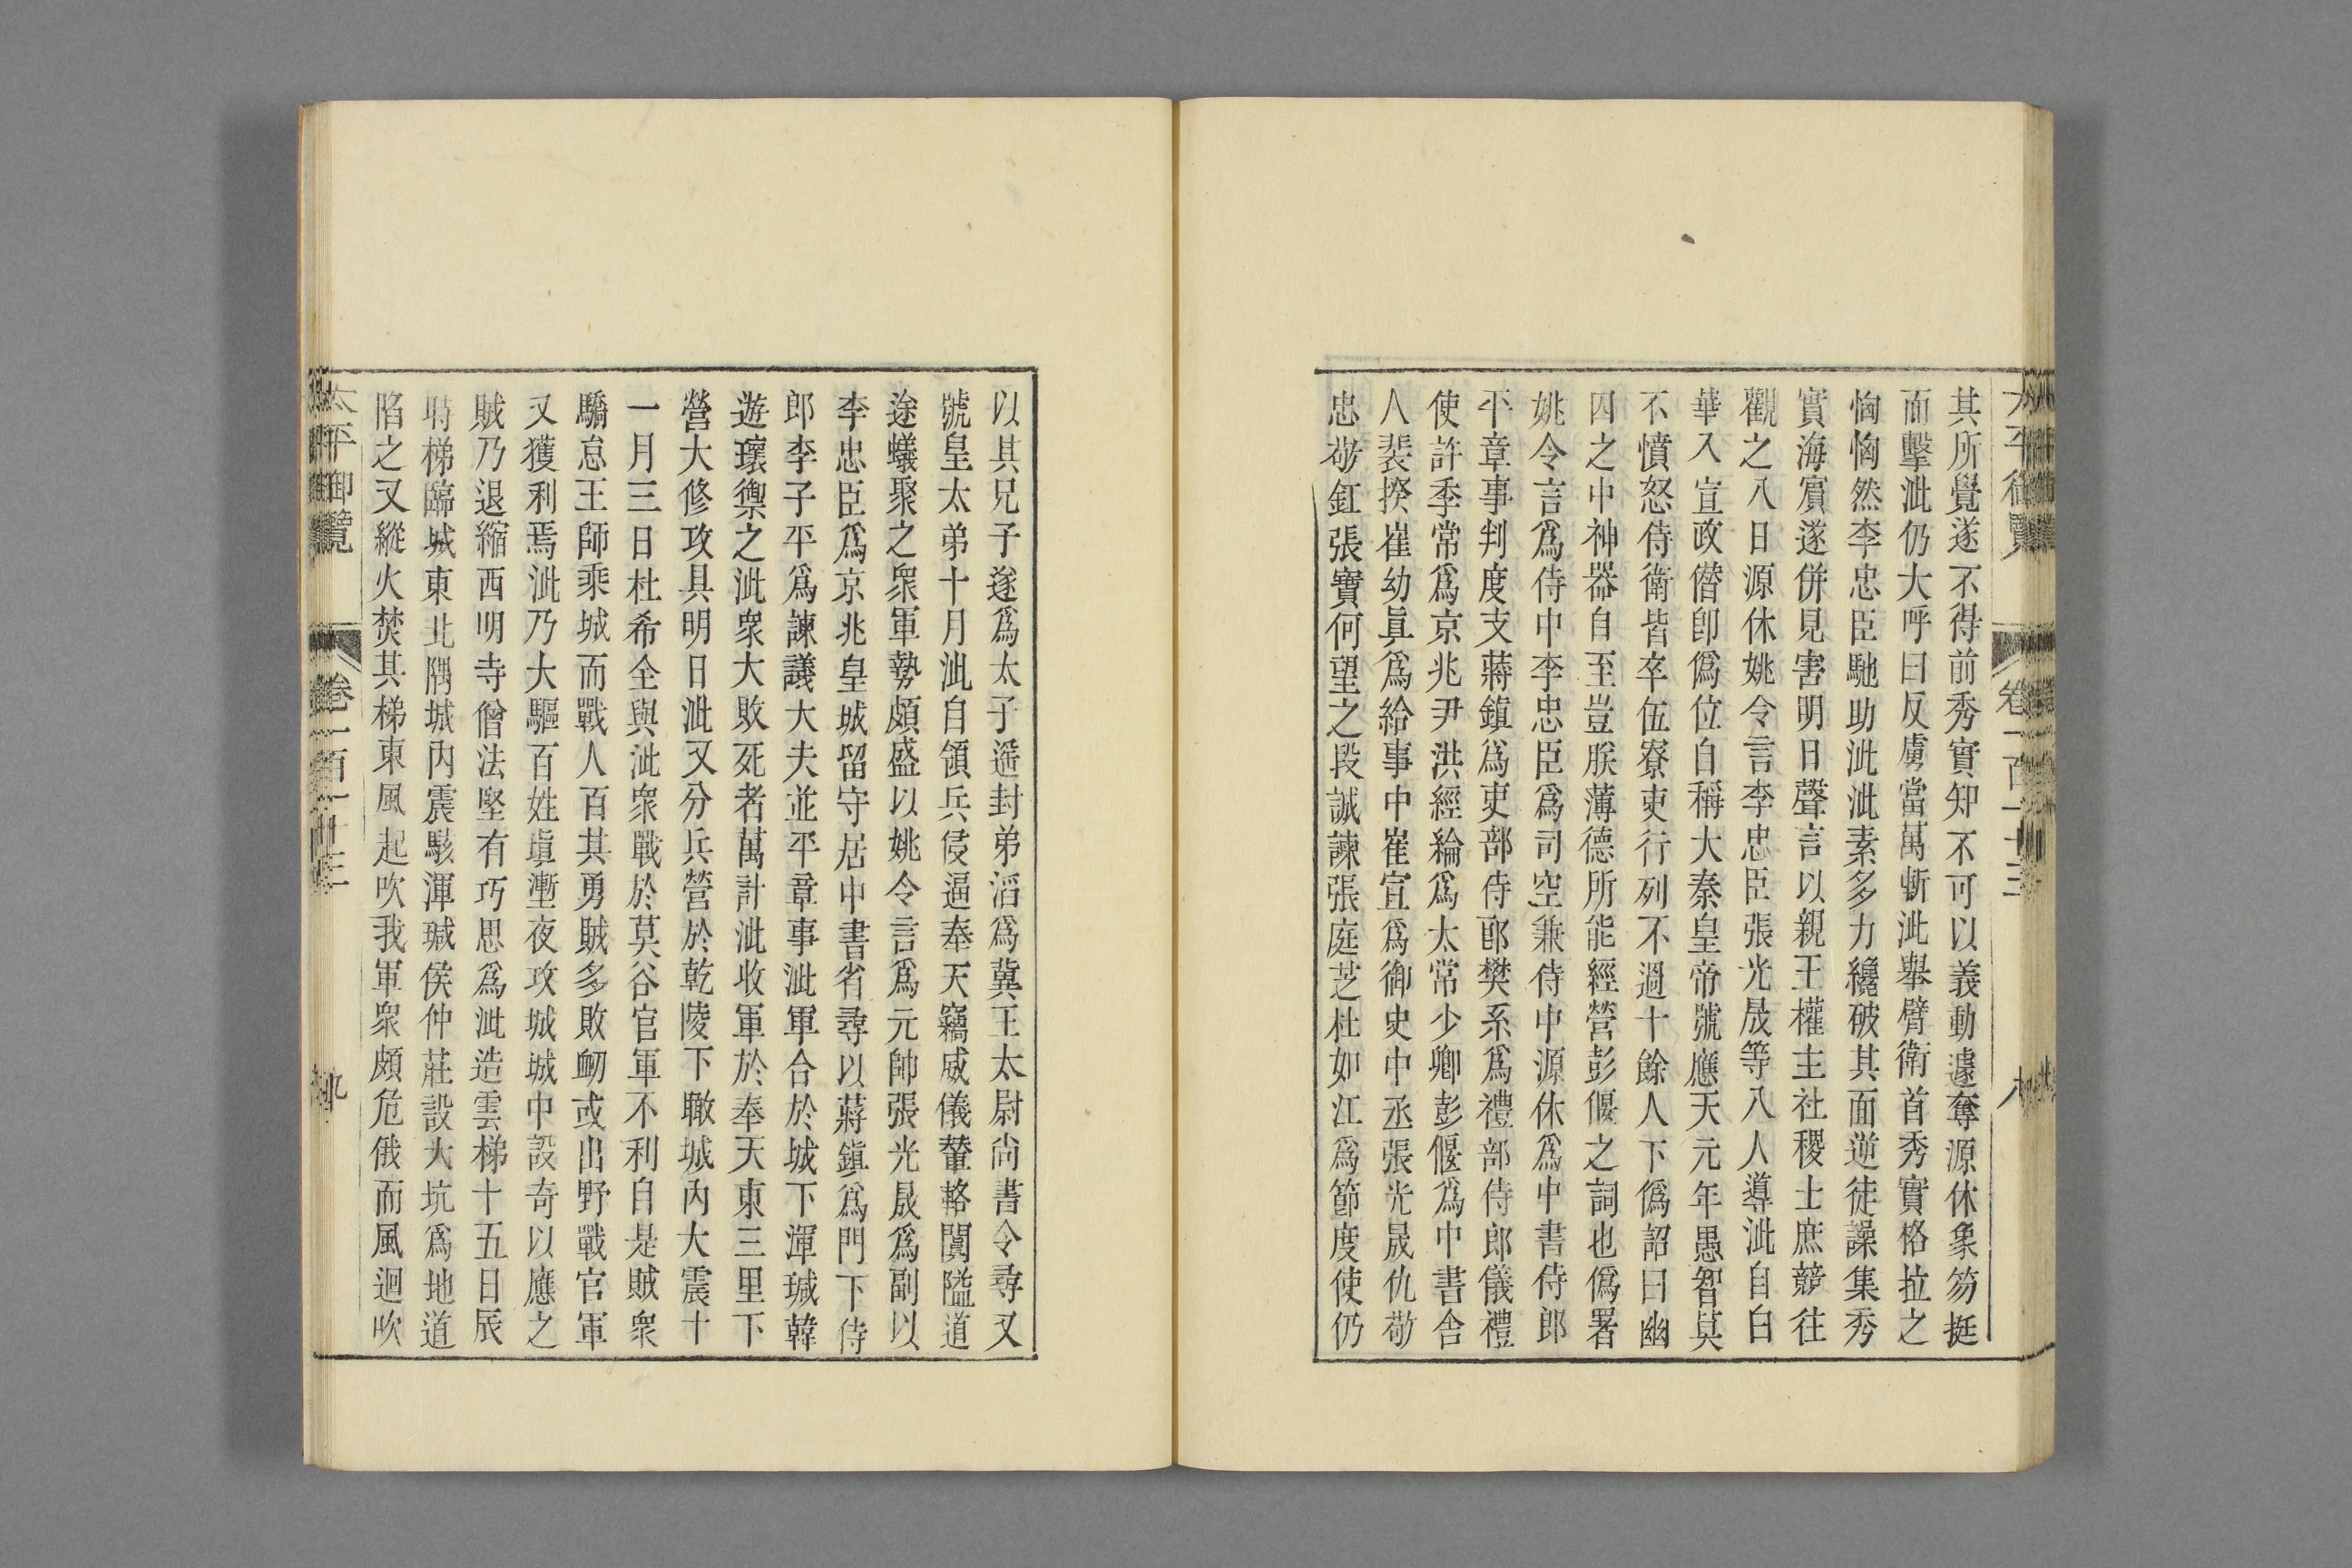 太平御覽 卷一百一十三 八
其所覺遂不得前秀實知不可以義動遽奪源休象笏挺
而擊泚仍大呼曰反虜當萬斬泚舉臂衛首秀實格拉之
恟恟然李忠臣馳助泚泚素多力纔破其面逆徒譟集秀
實海賓遂併見害明日聲言以親王權主社稷士庶競往
觀之八日源休姚令言李忠臣張光晟等八人導泚自白
華入宣政僭卽僞位自稱大秦皇帝號應天元年愚智莫
不憤怒侍衛皆卒伍寮吏行列不過十餘人下僞詔曰幽
囚之中神器自至豈朕薄德所能經營彭偃之詞也僞署
姚令言爲侍中李忠臣爲司空兼侍中源休爲中書侍郎
平章事判度支蔣鎮爲吏部侍郎樊系爲禮部侍郎儀禮
使許季常爲京兆尹洪經綸爲太常少卿彭偃爲中書舍
人裴揆崔幼眞爲給事中崔宣爲御史中丞張光晟仇敬
忠敬釭張寶何望之段誠諫張庭芝杜如江爲節度使仍
以其兄子遂爲太子遥封弟滔爲冀王太尉尚書令尋又
號皇太弟十月泚自領兵侵逼奉天竊威儀輦輅闐隘道
途蟻聚之衆軍勢頗盛以姚令言爲元帥張光晟爲副以
李忠臣爲京兆皇城留守居中書省尋以蔣鎮爲門下侍
郎李子平爲諫議大夫並平章事泚軍合於城下渾瑊韓
遊瓌禦之泚衆大敗死者萬計泚收軍於奉天東三里下
營大修攻具明日泚又分兵營於乾陵下瞰城內大震十
一月三日杜希全與泚衆戰於莫谷官軍不利自是賊衆
驕怠王師乘城而戰人百其勇賊多敗衂或出野戰官軍
又獲利焉泚乃大驅百姓塡塹夜攻城城中設奇以應之
賊乃退縮西明寺僧法堅有巧思爲泚造雲梯十五日辰
時梯臨城東北隅城內震駭渾瑊侯仲莊設大坑爲地道
陷之又縱火焚其梯東風起吹我軍衆頗危俄而風迴吹
太平御覽 卷一百一十三 九